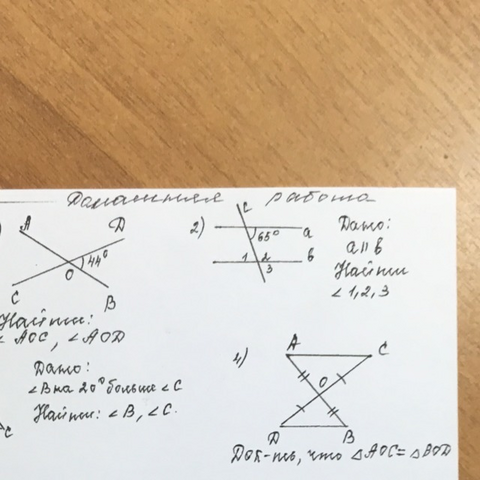 Домашняя работа
A
D
O
44°
C
B
Найти:
∠AOC, ∠AOD
2)
c
65°
a
1 2
b
3
Дано:
a || b
Найти
∠1,2,3
Дано:
∠B на 20° больше ∠C
Найти: ∠B, ∠C.
C
4)
A
C
O
D
B
Док-ть, что △AOC=△BOD